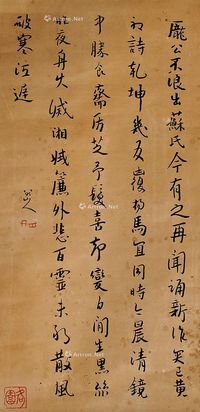 龐公不浪出蘇氏今有之再聞誦新作突過黃
初詩乾坤幾反覆揚馬宜同時今晨清鏡
中勝食齋房芝予髮喜却變白間生黑絲
昨夜舟火滅湘娥簾外悲百靈未敢散風
破寒江遲
八大山人